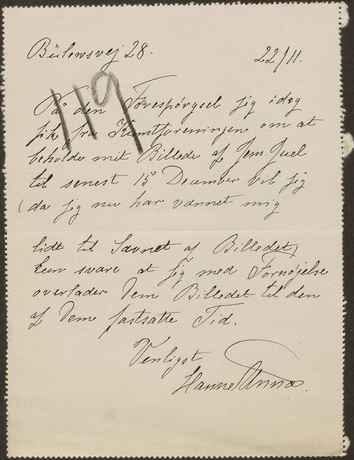 Bülowsvej 28. 22/11.
119
Paa den Forespørgsel jeg idag
fik fra Kunstforeningen om at
beholde mit Billede af Jens Juel
til senest 15de December vil jeg
(da jeg nu har vænnet mig
lidt til Savnet af Billedet)
kun svare at jeg med Fornøjelse
overlader Dem Billedet til den
af Dem fastsatte Tid.
Venligst
Hanne